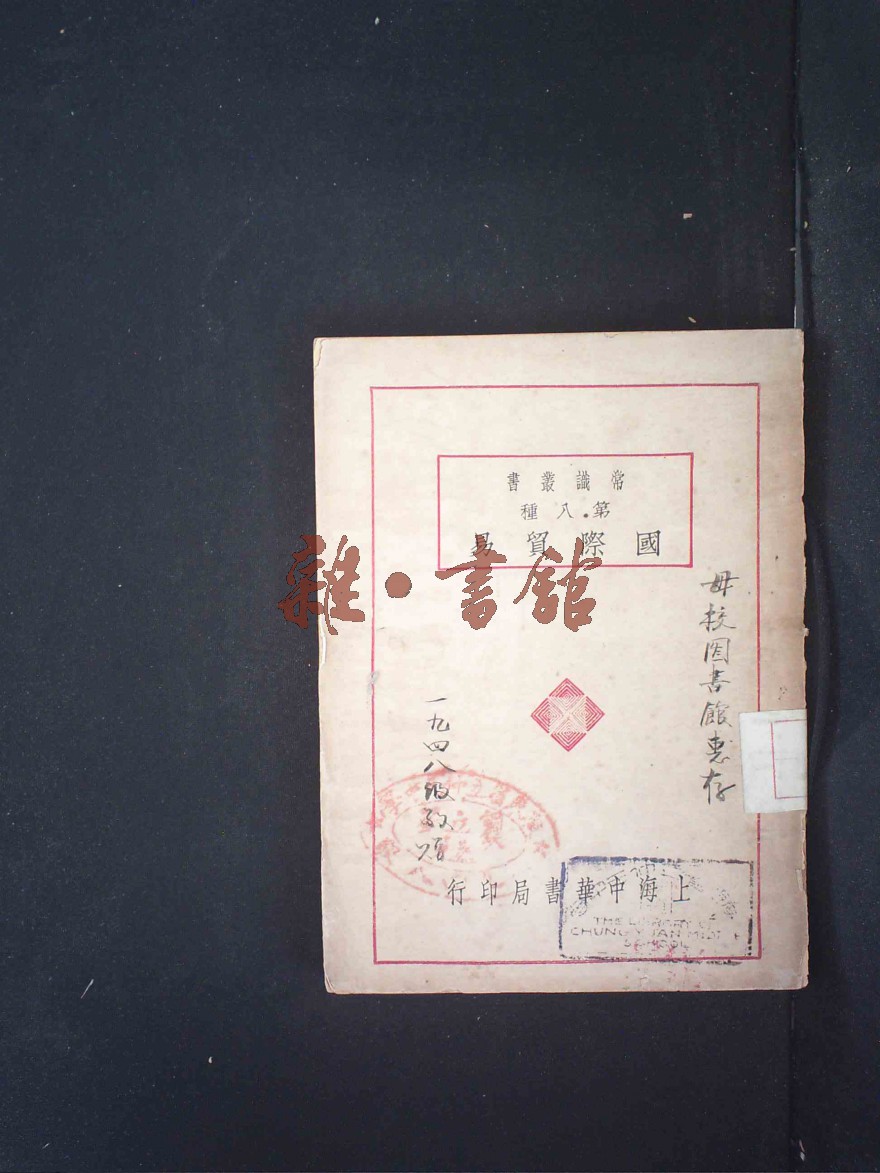 常識叢書
第八種
國際貿易
雜·書館
母校图書館惠存
一九四八級敬贈
上海中華書局印行
THE LIBRARY OF
SCHOOL